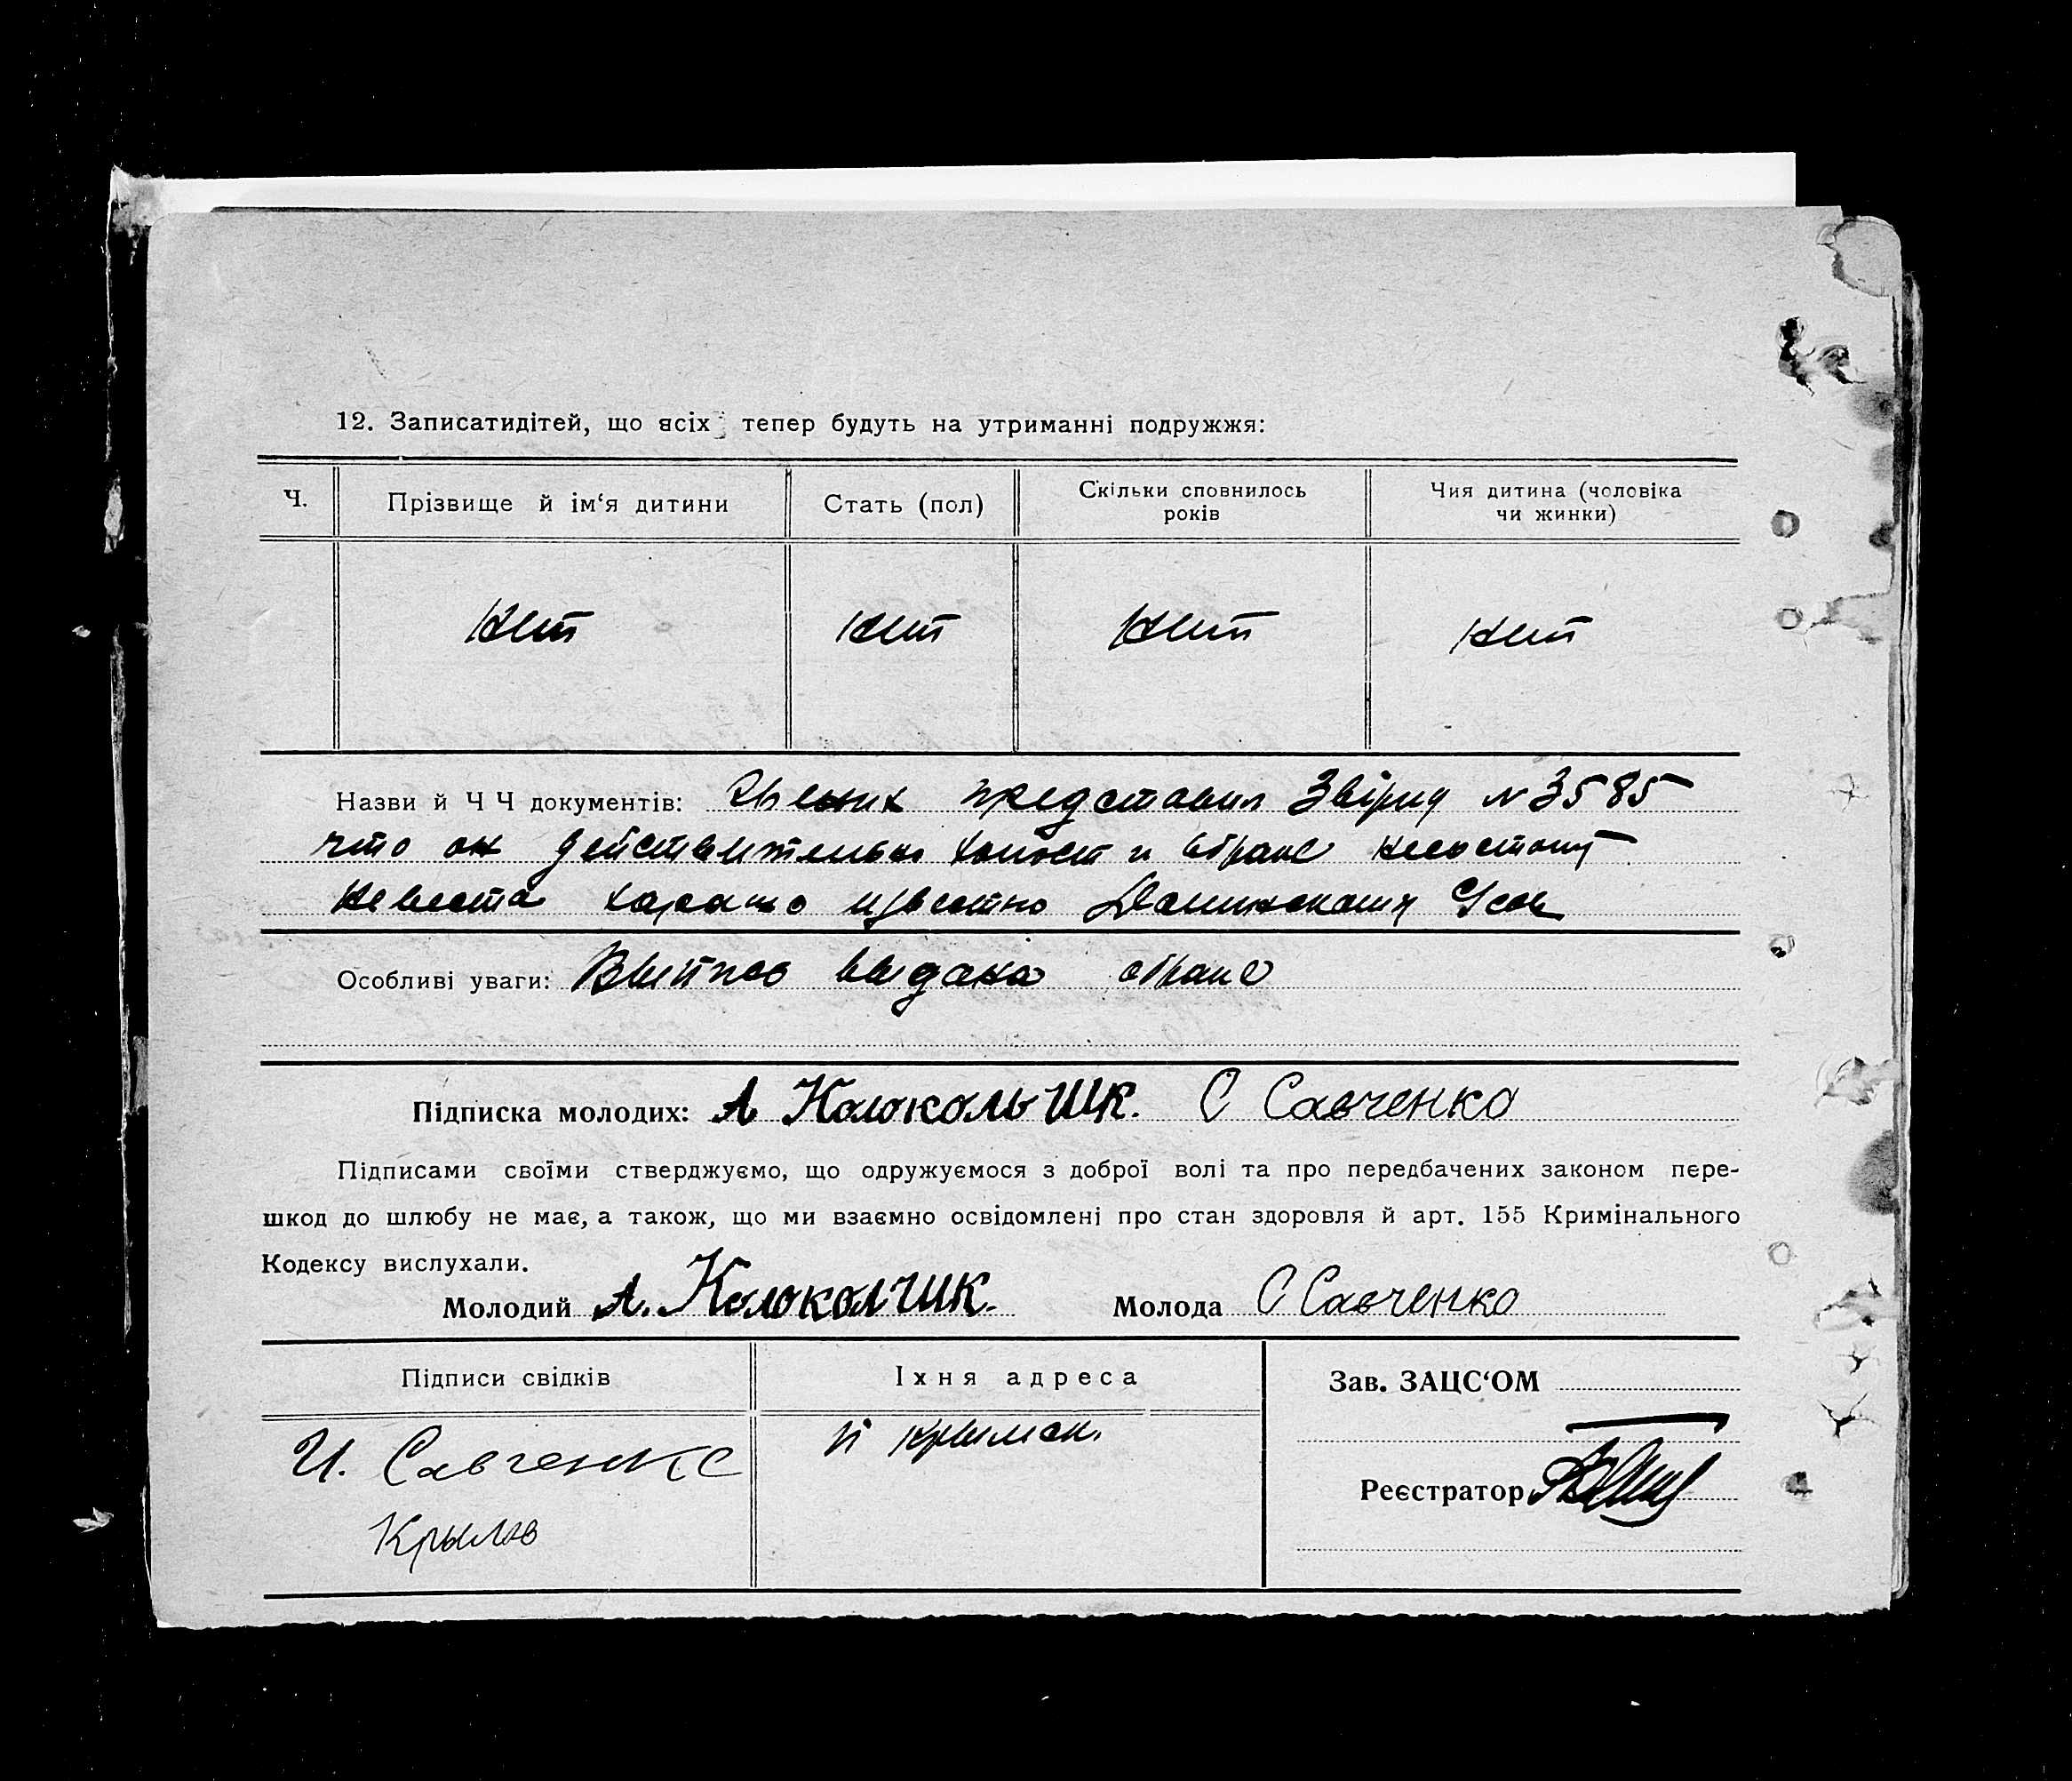 12. Записатидітей, що всіх тепер будуть на утриманні подружжя:
Ч. Прізвище й ім‘я дитини Стать (пол) Скільки сповнилось років Чия дитина (чоловіка чи жинки)
нет нет нет нет
Назви й Ч Ч документів: Жених представил Звірку № 3585
что он действительно холост и в браке несостоит
Невеста харашо известно
Особливі уваги: выдана о браке
Підписка молодих: А Колокольчик. С Савченко
Підписами своїми стверджуємо, що одружуємося з доброї волі та про передбачених законом пере-
шкод до шлюбу не має, а також, що ми взаємно освідомлені про стан здоровля й арт. 155 Кримінального
Кодексу вислухали.
Молодий А. Колоколчик. Молода С Савченко
Підписи свідків Їхня адреса Зав. ЗАЦС‘ОМ
И. Савченко
Реєстратор